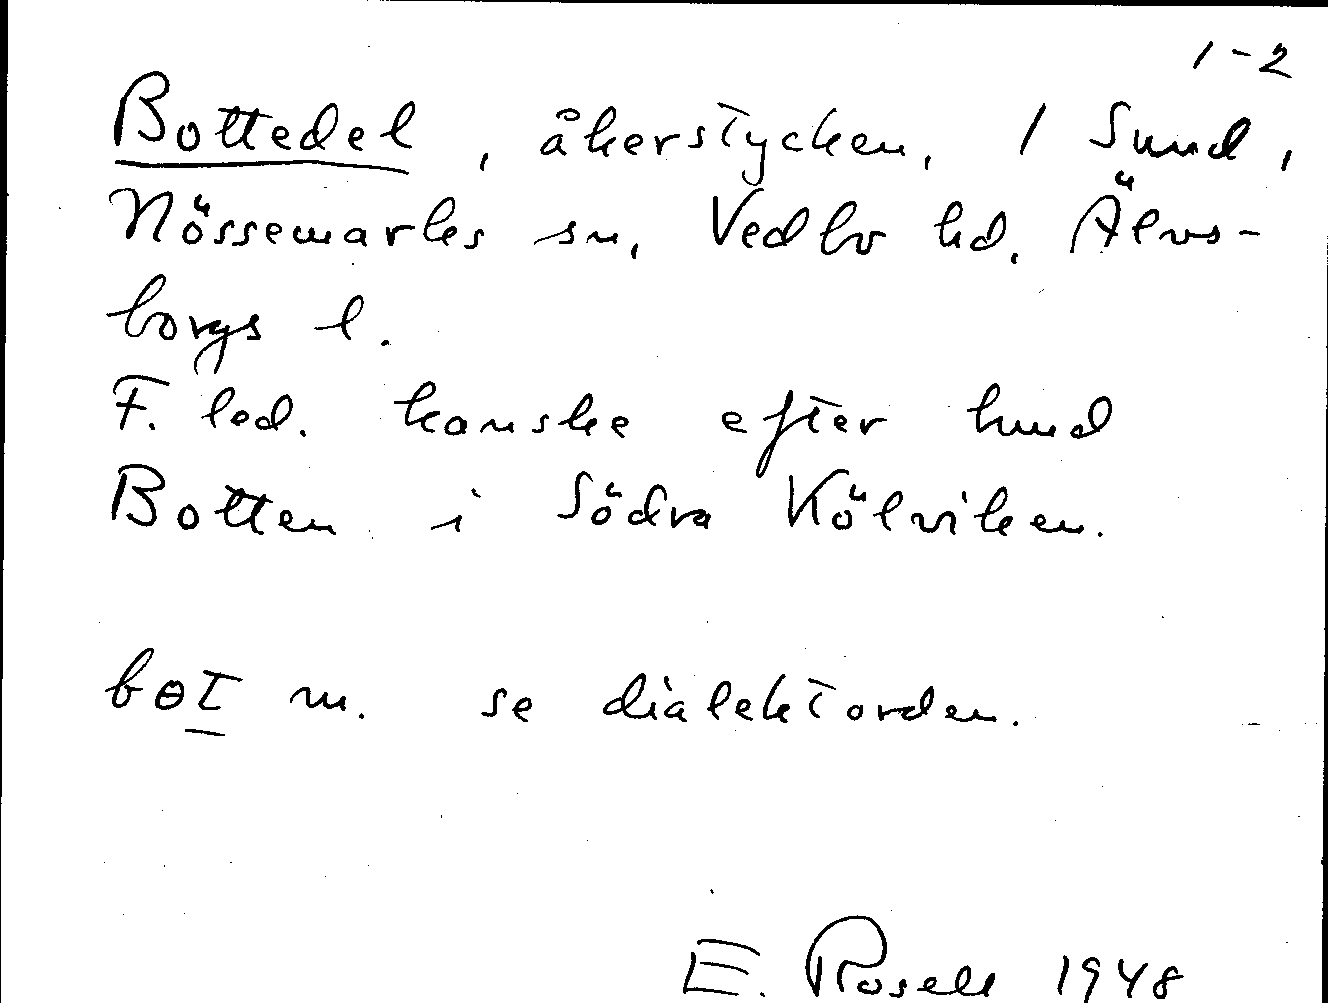 1-2
Bottedel, åkerstycken, 1 Sund,
Nössemarks sn, Vedbo hd. Älvs-
borgs l.
F. led. kanske efter lund
Botten i Södra Kölviken.
bɵt m. se dialektorden.
E. Rosell 1948